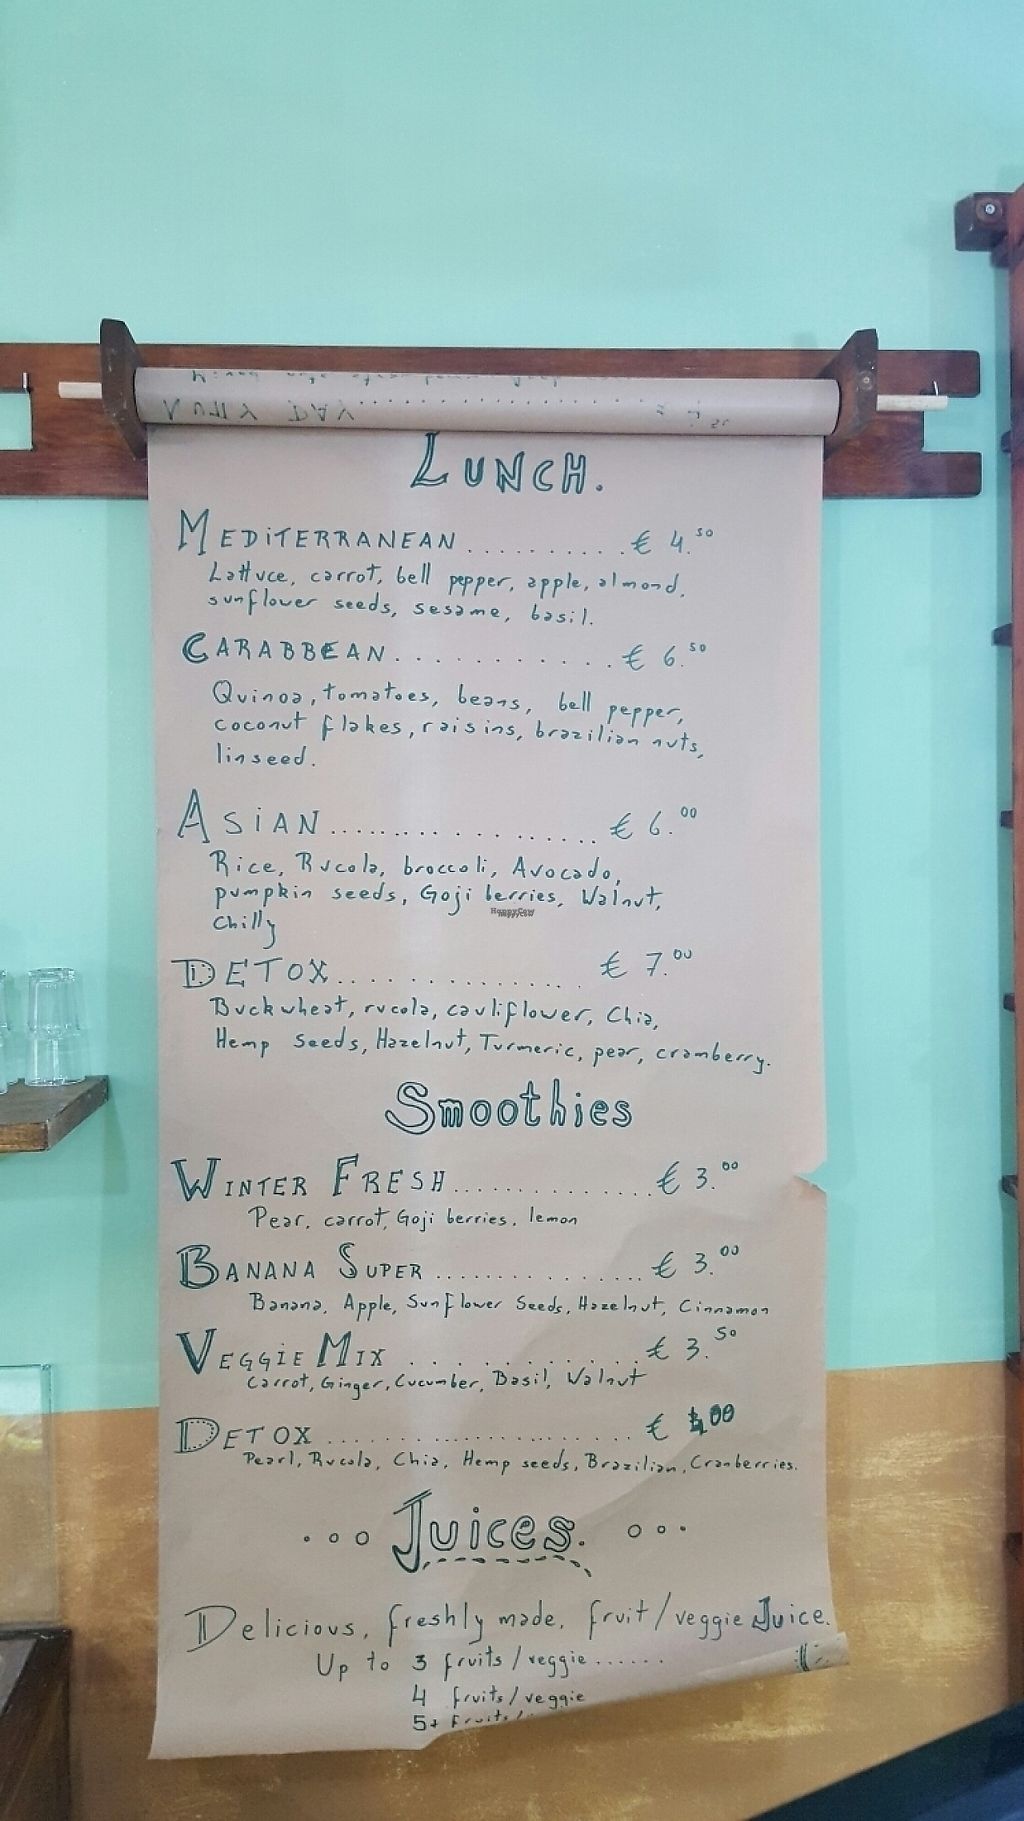 LUNCH.
MEDITERRANEAN .......... € 4.50
Lattuce, carrot, bell pepper, apple, almond,
sunflower seeds, sesame, basil.
CARABBEAN ............ € 6.50
Quinoa, tomatoes, beans, bell pepper,
coconut flakes, raisins, brazilian nuts,
linseed.
ASIAN .................. € 6.00
Rice, Rucola, broccoli, Avocado,
pumpkin seeds, Goji berries, Walnut,
HappyCow
Chilly
DETOX ............... € 7.00
Buckwheat, rucola, cauliflower, Chia,
Hemp Seeds, Hazelnut, Turmeric, pear, cramberry.
Smoothies
WINTER FRESH ............... € 3.00
Pear, carrot, Goji berries, lemon
BANANA SUPER ................ € 3.00
Banana, Apple, Sunflower Seeds, Hazelnut, Cinnamon
VEGGIE MIX ............ € 3.50
Carrot, Ginger, Cucumber, Basil, Walnut
DETOX ........................ €
Pearl, Rucola, Chia, Hemp seeds, Brazilian, Cranberries.
Juices.
Delicious, freshly made, fruit/veggie Juice.
Up to 3 fruits/veggie ......
4 fruits/veggie
5+ fruits/